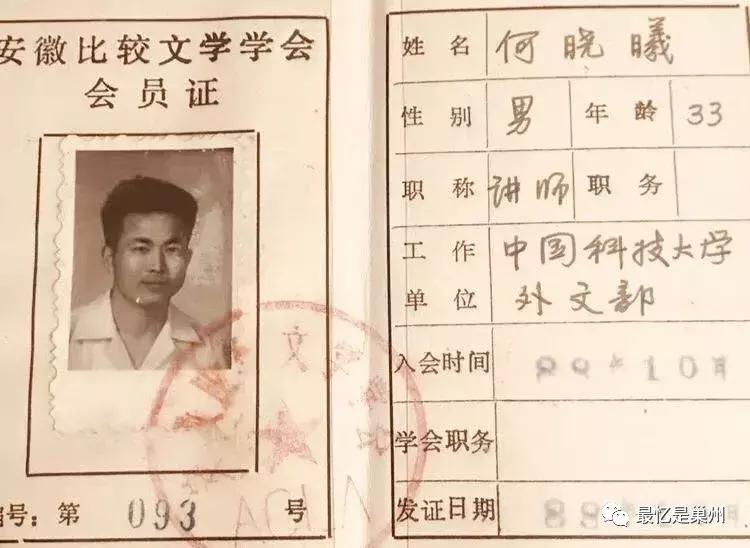 安徽比较文学学会
会员证
编号：第 093 号
姓名 何晓曦
性别 男 年龄 33
职称 讲师 职务
工作单位 中国科技大学
外文部
入会时间 89年10月
学会职务
发证日期 89
最忆是巢州